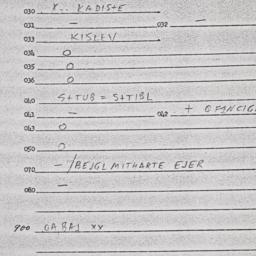 030 K.. KADISTE
031 — 032 —
033 KISLEV
034 O
035 O
036 O
040 S+TUB = S+TIBL
041 — 042 +
043 O
050 O
070 —/BEJGLMITHARTE EJER
080 —
900 GARAJ XX